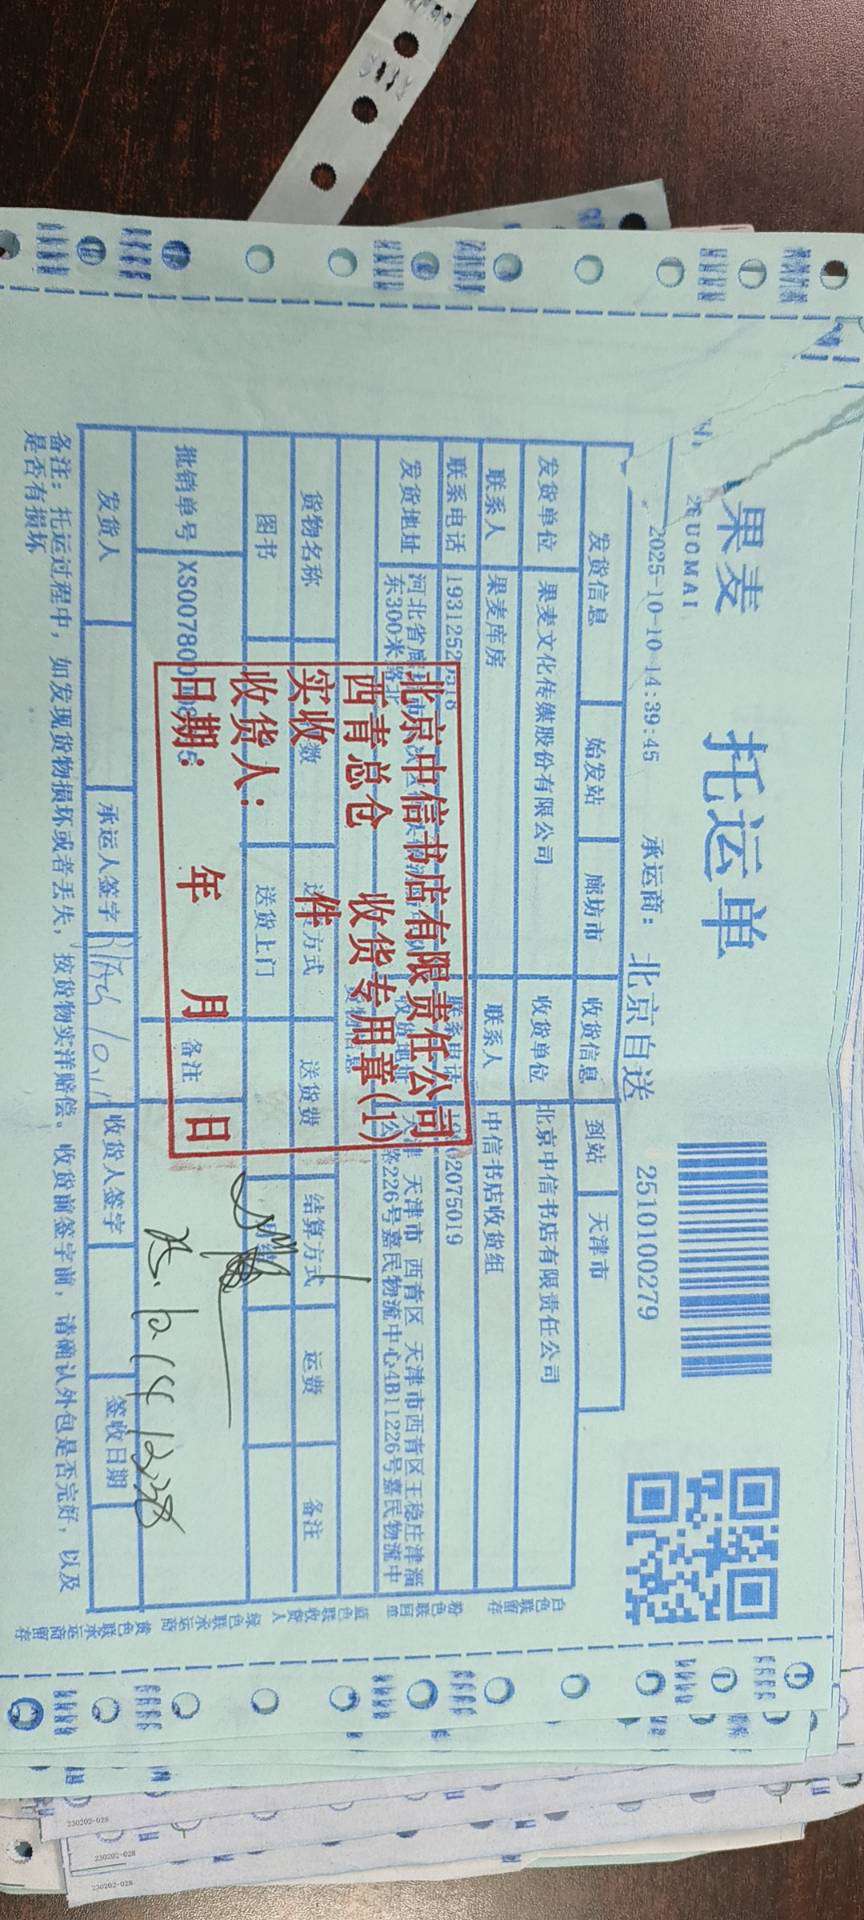 果麦
GUOMAI
托运单
2025-10-10 14:39:45
承运商：
北京自送
2510100279
发货信息 始发站 廊坊市 收货信息 到站 天津市
发货单位 果麦文化传媒股份有限公司 收货单位 北京中信书店有限责任公司
联系人 果麦库房 联系人 中信书店收货组
联系电话 1931252 联系电话 2075019
发货地址 河北省廊 天津市 西青区 天津市西青区王稳庄津淄
东300米路北 226号嘉民物流中心4B11226号嘉民物流中
货物名称 方式 送货费 结算方式 运费 备注
图书 送货上门
批销单号 XS007800 备注
发货人 承运人签字 收货人签字 签收日期
备注：托运过程中，如发现货物损坏或者丢失，按货物实洋赔偿。收货前签字前，请确认外包是否完好，以及
是否有损坏
北京中信书店有限责任公司
西青总仓 收货专用章(1)
实收 件
收货人：
日期： 年 月 日
白色联留存
粉色联回单
蓝色联收货人
绿色联承运商
黄色联承运商留存
230202-028
230202-028
230202-028